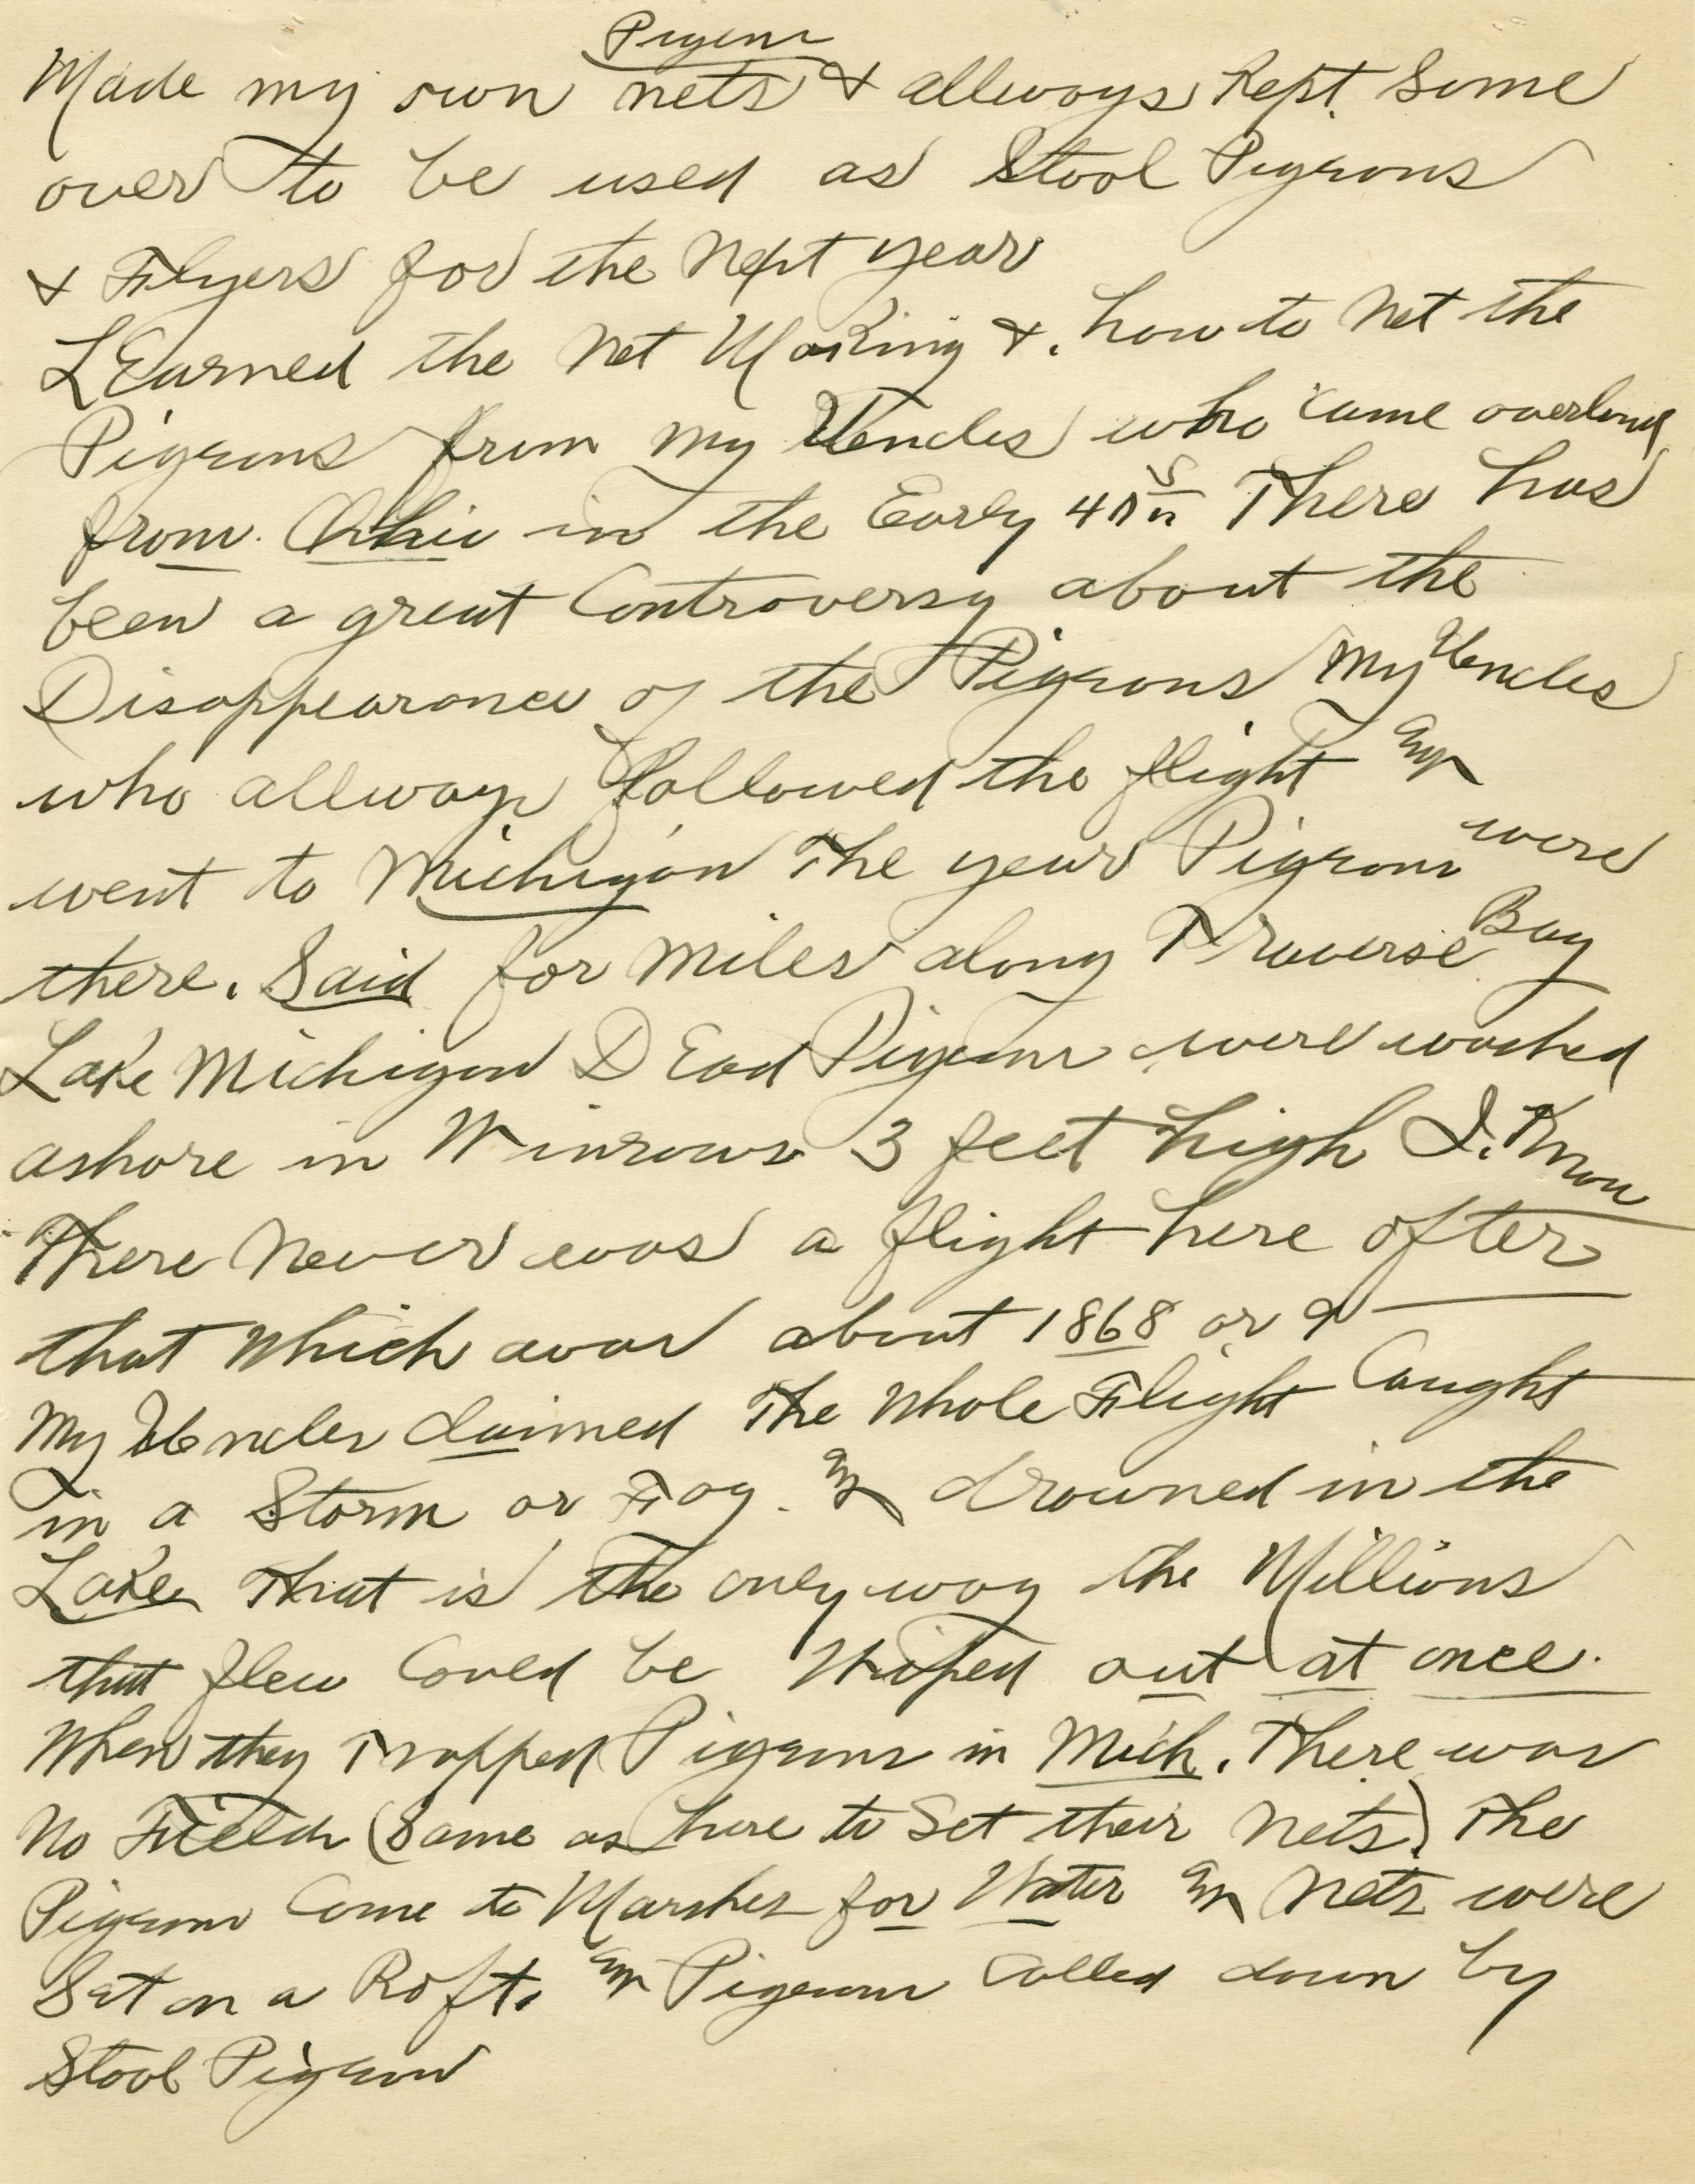 Pigeon
Made my own nets & allways Kept Some
over to be used as Stool Pigeons
& Flyers for the Next year
LEarned the Net Making & how to Net the
Pigeons from my Uencles who came overland
from Ohio in the Early 40s There has
been a great Controversy about the
Disappearance of the Pigeons My Uencles
who allways followed the flight and
went to Michigan The year Pigeons were
there. Said for miles along Traverse Bay
Lake Michigan DEad Pigeons were washed
ashore in Winrows 3 feet high I. Know
There Never was a flight here after
that Which was about 1868 or 9
My Uencles claimed The Whole Flight Caught
in a Storm or Fog. and drowned in the
Lake That is the only way the Millions
that flew Could be Wiped out at once.
When they Trapped Pigeons in Mich. There was
No Fields (Same as here to Set their Nets) The
Pigeons Come to Marshes for Water and Nets were
Set on a Raft. and Pigeons Called down by
Stool Pigeon